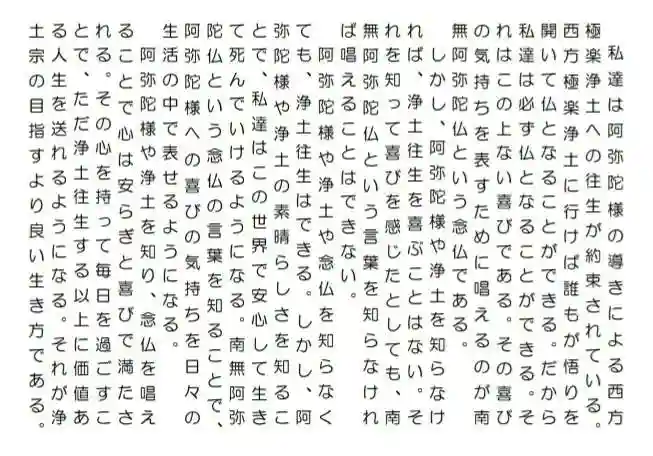 私達は阿弥陀様の導きによる西方
極楽浄土への往生が約束されている。
西方極楽浄土に行けば誰もが悟りを
開いて仏となることができる。だから
私達は必ず仏となることができる。そ
れはこの上ない喜びである。その喜び
の気持ちを表すために唱えるのが南
無阿弥陀仏という念仏である。
しかし、阿弥陀様や浄土を知らなけ
れば、浄土往生を喜ぶことはない。そ
れを知って喜びを感じたとしても、南
無阿弥陀仏という言葉を知らなけれ
ば唱えることはできない。
阿弥陀様や浄土や念仏を知らなく
ても、浄土往生はできる。しかし、阿
弥陀様や浄土の素晴らしさを知るこ
とで、私達はこの世界で安心して生き
て死んでいけるようになる。南無阿弥
陀仏という念仏の言葉を知ることで、
阿弥陀様への喜びの気持ちを日々の
生活の中で表せるようになる。
阿弥陀様や浄土を知り、念仏を唱え
ることで心は安らぎと喜びで満たさ
れる。その心を持って毎日を過ごすこ
とで、ただ浄土往生する以上に価値あ
る人生を送れるようになる。それが浄
土宗の目指すより良い生き方である。